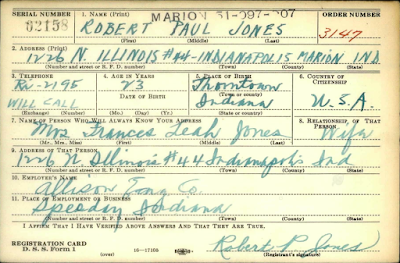 SERIAL NUMBER 1. NAME (Print) MARION 31-097-207 ORDER NUMBER
ROBERT PAUL JONES 3147
(First) (Middle) (Last)
2. ADDRESS (Print)
1226 N. ILLINOIS #44-INDIANAPOLIS, MARION, IND.
(Number and street or R. F. D. number) (Town) (County) (State)
3. TELEPHONE 4. AGE IN YEARS 5. PLACE OF BIRTH 6. COUNTRY OF CITIZENSHIP
2195 23 Thorntown
DATE OF BIRTH (Town or county)
WILL CALL Indiana U.S.A.
(Exchange) (Number) (Mo.) (Day) (Yr.) (State or country)
7. NAME OF PERSON WHO WILL ALWAYS KNOW YOUR ADDRESS 8. RELATIONSHIP OF THAT PERSON
Mrs. Frances Leah Jones Wife
(Mr., Mrs., Miss) (First) (Middle) (Last)
9. ADDRESS OF THAT PERSON
1226 N Illinois #44 Indianapolis Ind
(Number and street or R. F. D. number) (Town) (County) (State)
10. EMPLOYER'S NAME
Allison Eng Co.
11. PLACE OF EMPLOYMENT OR BUSINESS
Speedway Indiana
(Number and street or R. F. D. number) (Town) (County) (State)
I AFFIRM THAT I HAVE VERIFIED ABOVE ANSWERS AND THAT THEY ARE TRUE.
REGISTRATION CARD
D. S. S. Form 1 (over) Robert P. Jones
(Registrant's signature)